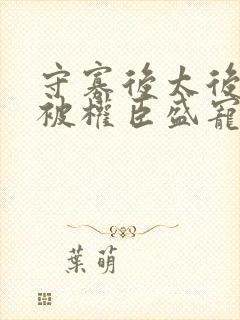 守寡後太後
被權臣盛寵
葉萌